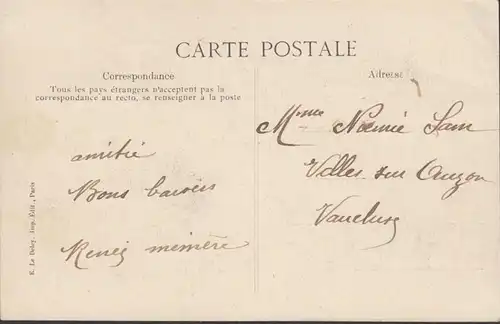 CARTE POSTALE
Correspondance
Tous les pays étrangers n'acceptent pas la
correspondance au recto, se renseigner à la poste
Adresse
amitié
Bons baisers
Mme Noémie
Villes sur Auzon
Vaucluse
E. Le Deley, Imp.-Édit., Paris